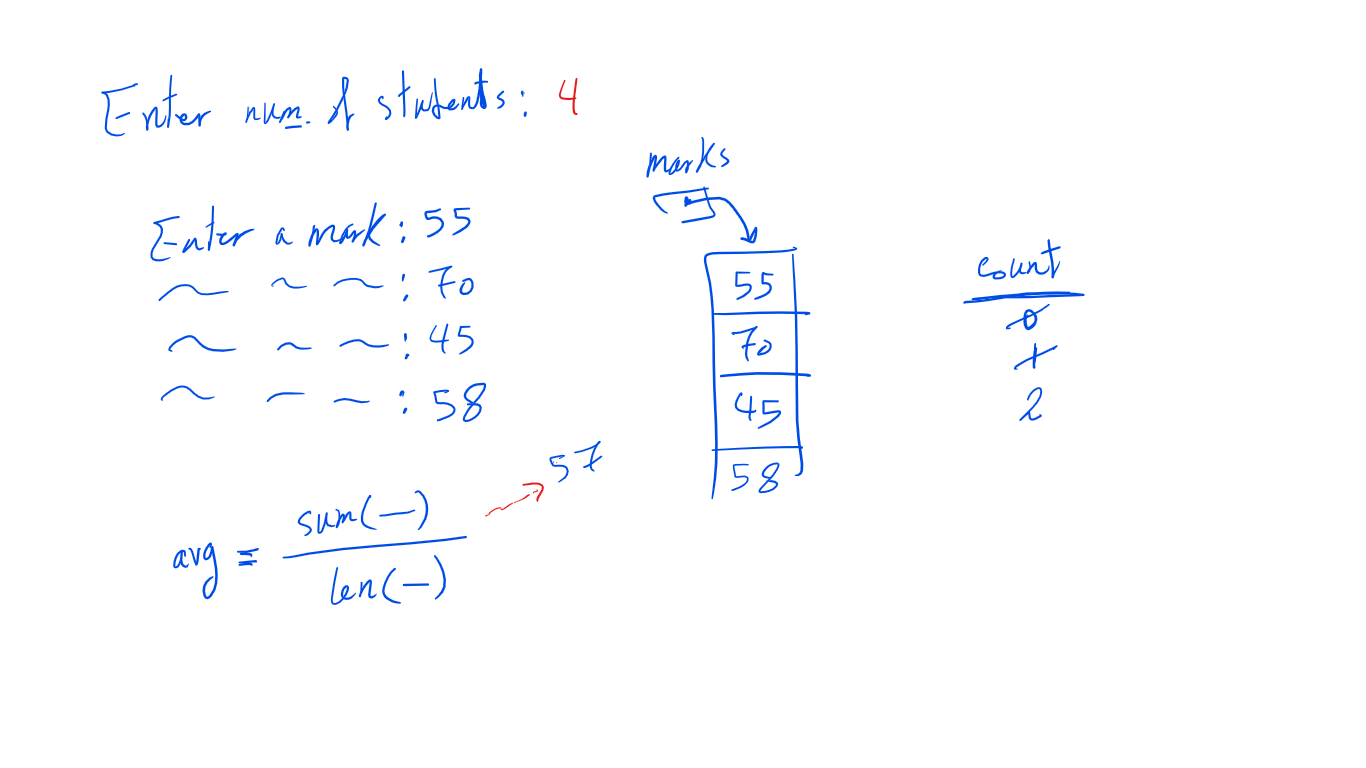 Enter num. of students: 4
Enter a mark: 55
~ ~ ~: 70
~ ~ ~: 45
~ ~ ~: 58
avg = sum(—)
len(—)
57
marks
55
70
45
58
count
0
1
2